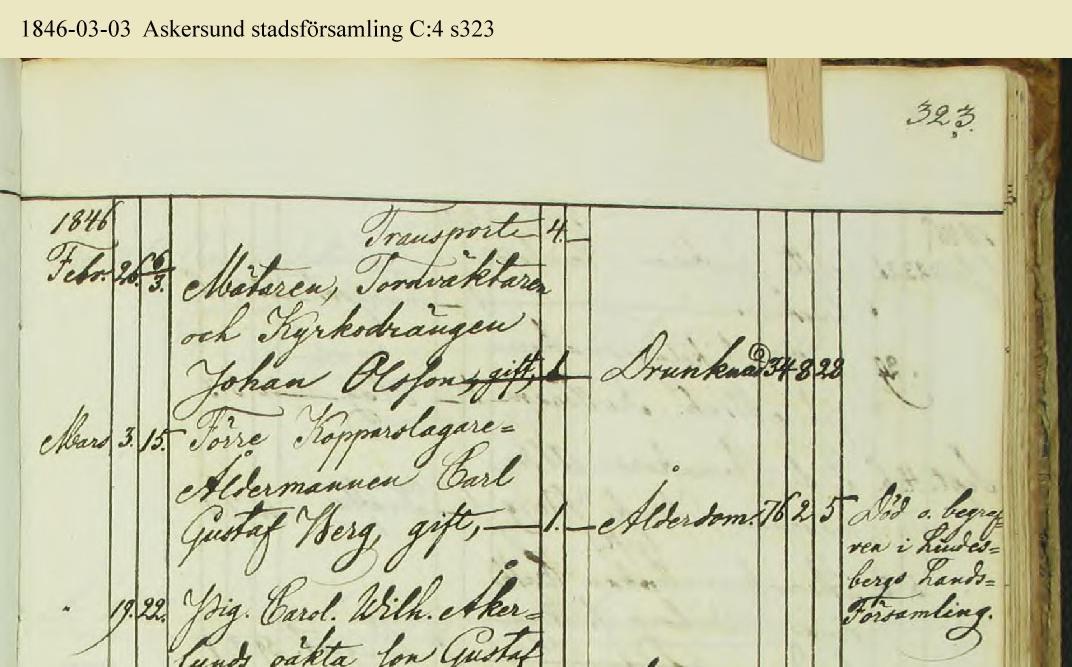 1846-03-03 Askersund stadsförsamling C:4 s323
323.
1846 Transport 4.
Febr. 26. 6/3. Mätaren, Tornväktaren
och Kyrkodrängen
Johan Olsson, gift, 1 Drunknad 34 8 22
Mars 3. 15. Förre Kopparslagare=
Åldermannen Carl
Gustaf Berg, gift, 1. Ålderdom. 76 2 5 Död o. begraf
ven i Lindes=
bergs Lands=
Församling.
" 19. 22. Pig. Carol. Wilh. Åker=
lunds oäkta son Gustaf